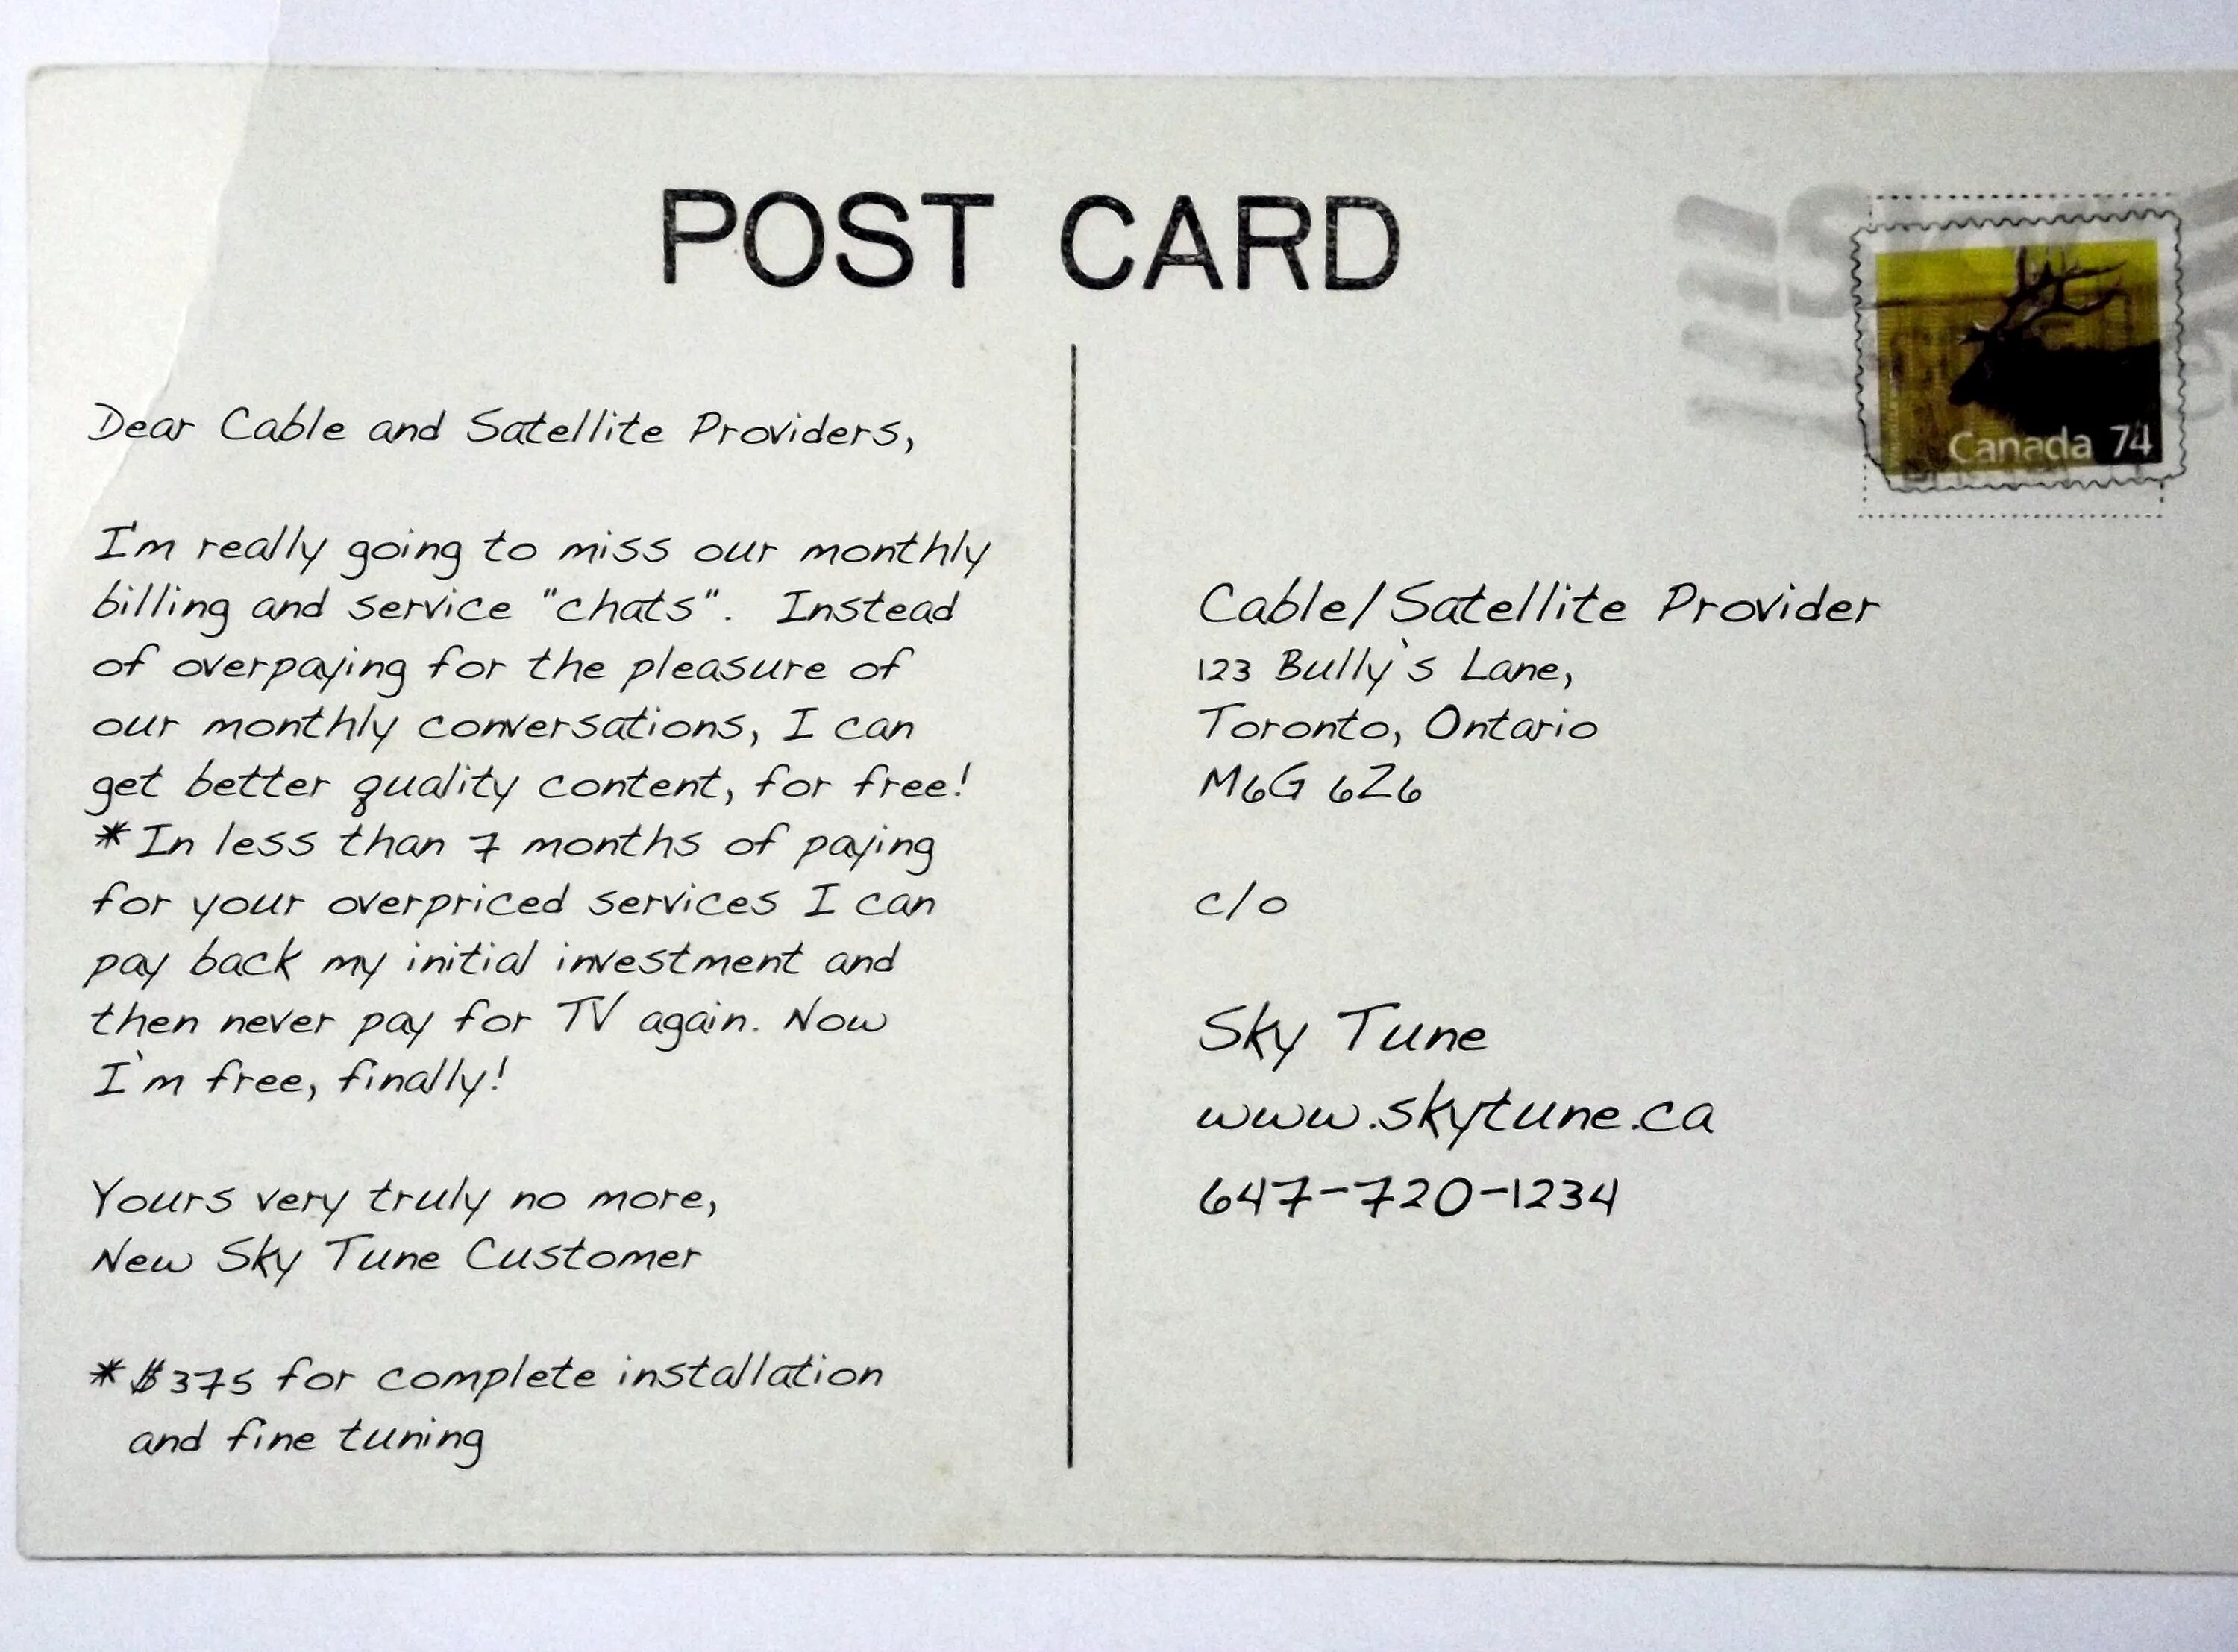 POST CARD
Dear Cable and Satellite Providers,
I'm really going to miss our monthly
billing and service "chats". Instead
of overpaying for the pleasure of
our monthly conversations, I can
get better quality content, for free!
*In less than 7 months of paying
for your overpriced services I can
pay back my initial investment and
then never pay for TV again. Now
I'm free, finally!
Yours very truly no more,
New Sky Tune Customer
*$375 for complete installation
and fine tuning
Canada 74
Cable/Satellite Provider
123 Bully's Lane,
Toronto, Ontario
M6G 6Z6
c/o
Sky Tune
www.skytune.ca
647-720-1234